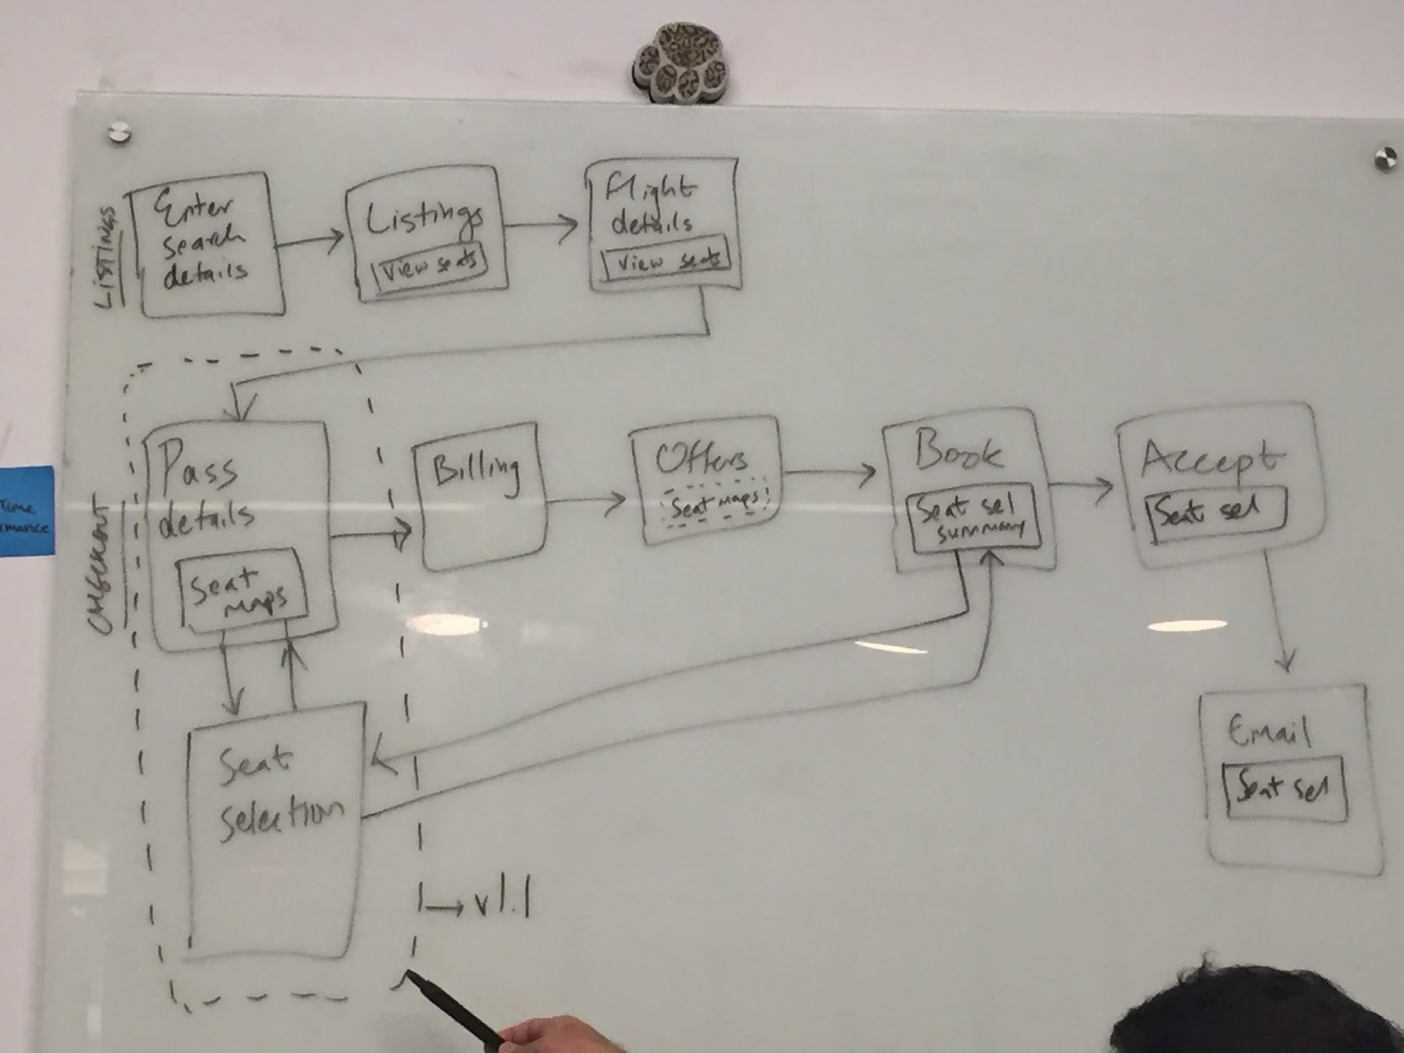 LISTINGS
Enter
search
details
Listings
View seats
Flight
details
View seats
CHECKOUT
Pass
details
Seat
maps
Billing
Offers
Seat Maps
Book
Seat sel
summary
Accept
Seat sel
Email
Seat sel
Seat
selection
v1.1